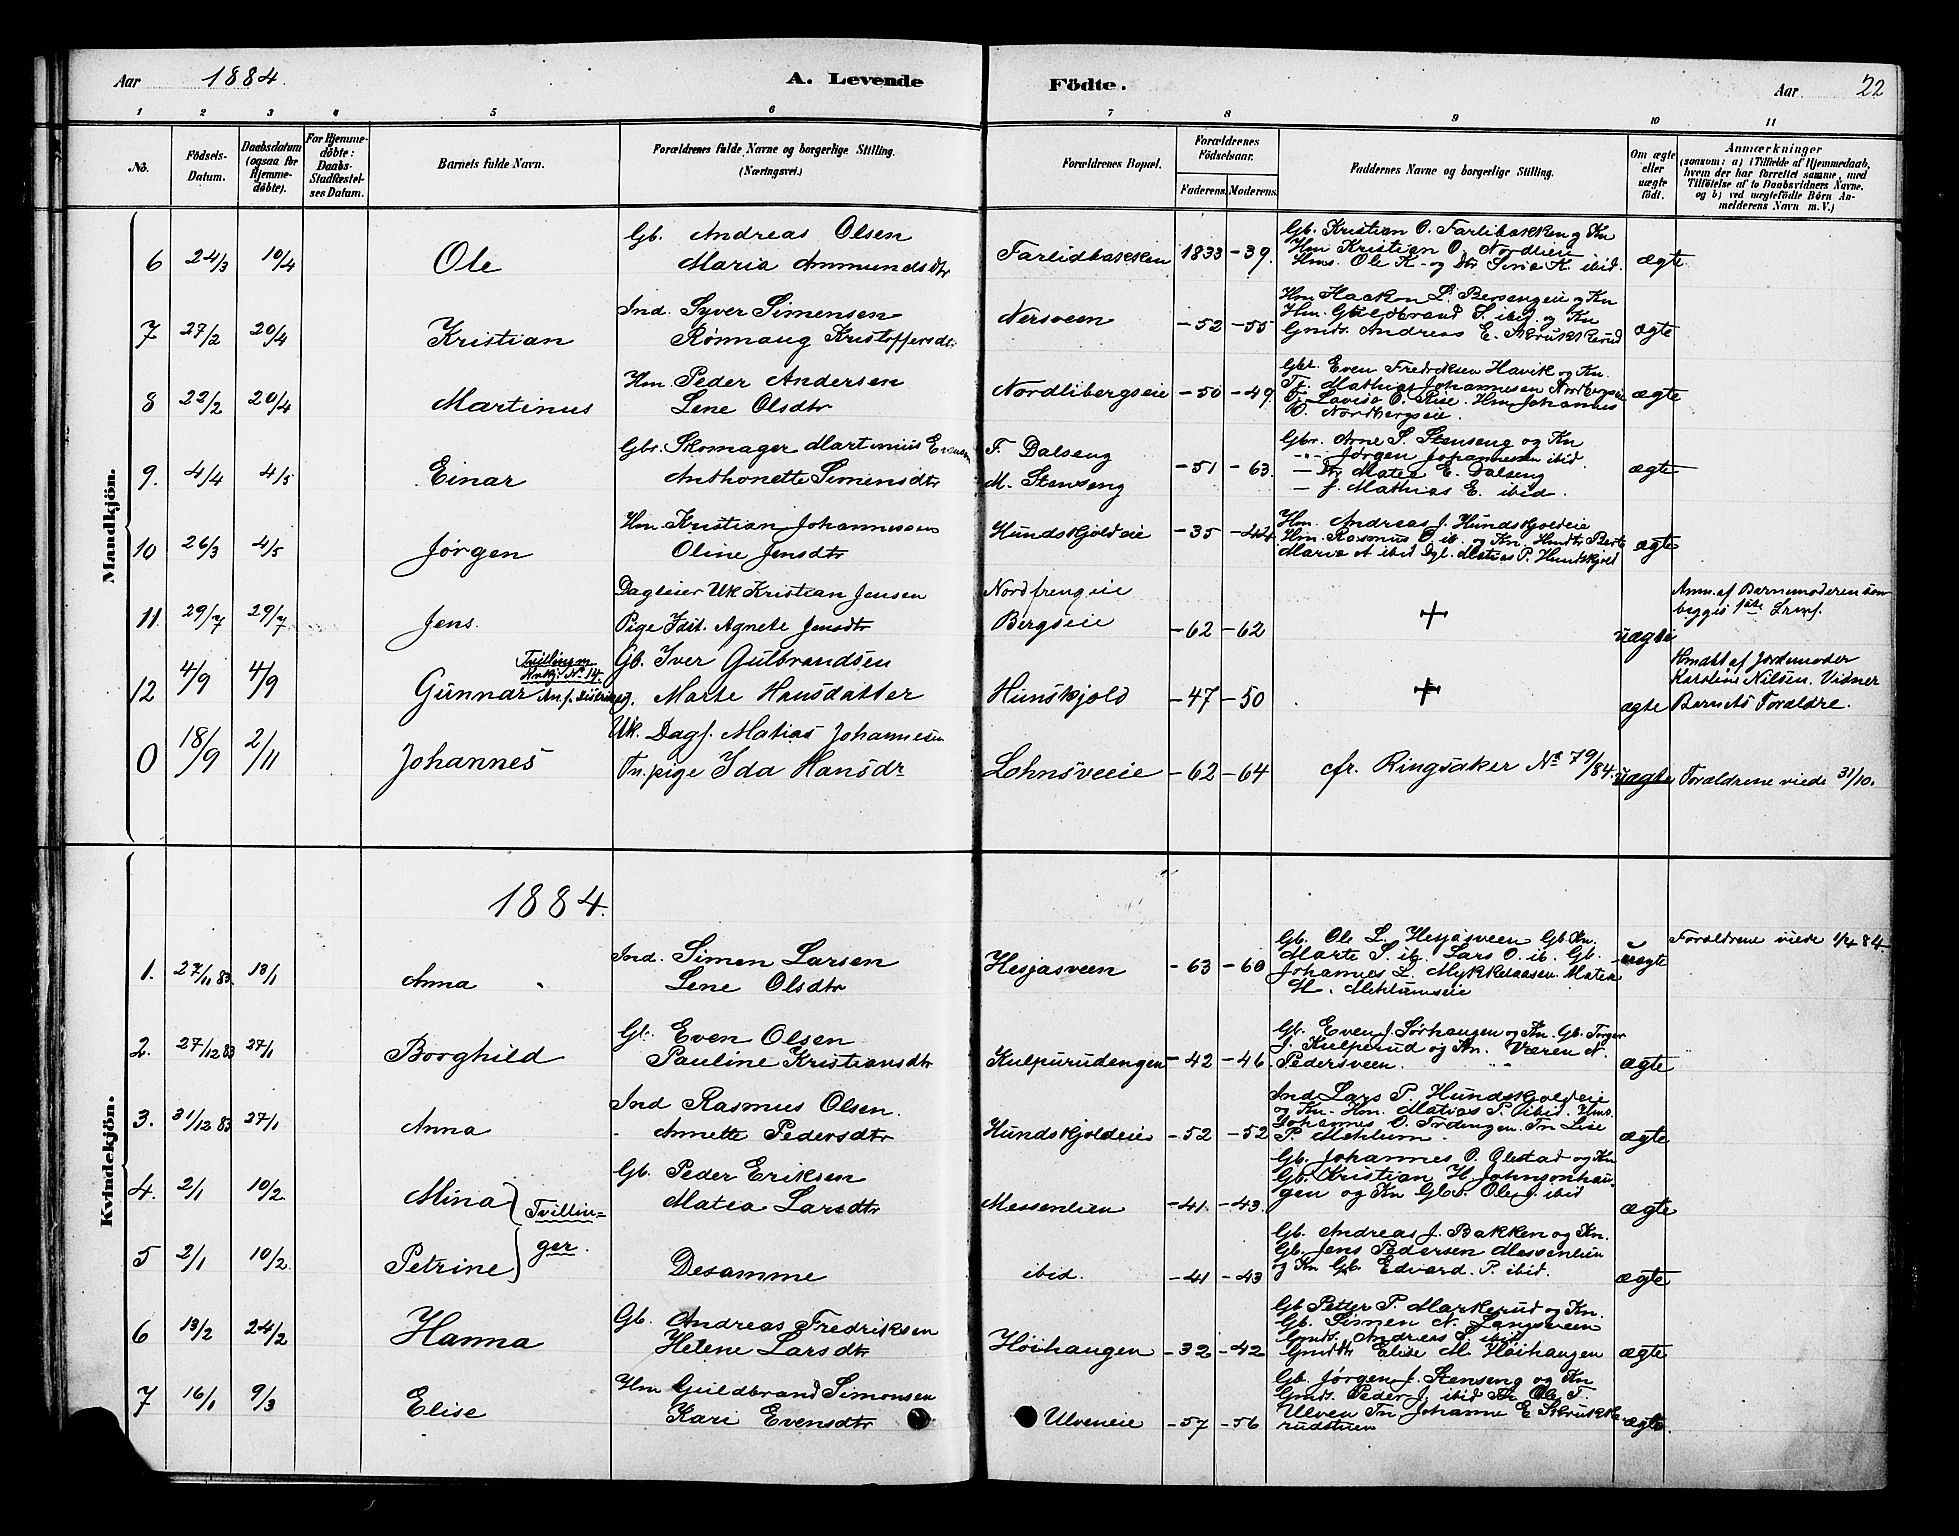 Aar 1884. A. Levende Födte. Aar 22
1 2 3 4 5 6 7 8 9 10 11
No. Födsels-Datum. Daabsdatum (ogsaa for Hjemme-døbte). For Hjemme-døbte: Daabs-Stadfæstel-ses Datum. Barnets fulde Navn. Forældrenes fulde Navne og borgerlige Stilling. (Næringsvei.) Forældrenes Bopæl. Forældrenes Födselsaar. Faderens. Moderens. Faddernes Navne og borgerlige Stilling. Om ægte eller uægte födt. Anmærkninger (saasom: a) Tilfælde af Hjemmedaab, hvem der har forrettet samme, med Tilföielse af to Daabsvidners Navne. og b) ved uægtefödte Börn An-melderens Navn m. V.)
Mandkjön.
6 24/3 10/4 Ole Gb. Andreas Olsen
Maria Ammundsdtr Farlidbakken 1833 -39.
Gb. Kristian O. Farlibakken og Kn
Hm Kristian O. Nordlieie
Hms. Ole K. og Dtr K. ibid. ægte
7 27/2 20/4 Kristian Ind. Syver Simensen
Rønnaug Kristoffersdtr Nersveen -52 -55
Hm Haakon L. Bersengeie og Kn
Hm. Guldbrand S ibid. og Kn
Gmds. Andreas E. Skrukkerud ægte
8 22/2 20/4 Martinus Hm Peder Andersen
Lene Olsdtr Nordlibergseie -50 -49
Gbr. Even Fredriksen Havik og Kn.
Tj. Mathias Johannesen Nordbergseie
Hm Johannes
O. Nordbergseie. ægte
9. 4/4 4/5 Einar Gbr. Skomager Martinius Evensen
Anthonette Simensdtr
F. Dalseng
M. Stenseng -51 -63.
Gbr. Arne S. Stenseng og Kn
Jørgen Johannesen ibid.
- Dtr Matea E. Dalseng
- f. Mathias E. ibid. ægte
10 26/3 4/5 Jørgen Hm. Kristian Johannesen
Oline Jensdtr Hundskjoldeie -35 -44
Hm. Andreas J. Hundskjoldeie
Hm. Rasmus O ib. og Kn.
Maria A ibid Matias P. Hundskjold ægte
11. 29/7 29/7 Jens. Dagleier Uk Kristian Jensen
Pige Agnete Jensdtr
Nordfrengeie
Bergseie -62 -62 uægte
Anm. af Barnemoderen som
12 4/9 4/9 Gunnar
Tvilling m
Kvkj No 14.
Gb. Iver Gulbrandsen
Marte Hansdatter Hunskjold -47 -50 ægte
Hmdbt af Jordemoder
Karoline Nilsen. Vidner
Barnets Forældre.
0 18/9 2/11 Johannes Uk. Dagl. Matias Johannesen
Tn.pige Ida Hansdr Lohnsveeie -62 -64 cfr. Ringsaker No 79/84. uægte Forældrene viede 31/10.
Kvindekjön.
1884.
1. 27/11 83. 13/1 Anna Ind. Simen Larsen
Lene Olsdtr Hesjasveen -63 -60
Gb. Ole L. Hesjasveen Gb.Kn.
Marte S. ib. Lars O. ib. Gb.
Johannes L. Mykkelaasen. Matea
M. Mehlumseie uægte Forældrene viede 1/4 84.
2. 27/12 83 27/1 Borghild Gb. Even Olsen
Pauline Kristiansdtr Kulpurudengen -42 -46
Gb. Even J. Sørhaugen og Kn. Gb. Torger
J. Kulperud og Kn. Væren N.
Pedersveen. ægte
3. 31/12 83 27/1 Anna Ind Rasmus Olsen.
Annette Pedersdtr Hundskjoldeie -52 -52
Ind Lars P. Hundskjoldeie
og Kn. Hm. Matias P. ibid. Hms.
Johannes O. Trøengen. Tn Lise
P. Mehlum. ægte
4. 2/1 10/2 Mina Gb. Peder Eriksen
Matea Larsdtr Messenlien -41. -43.
Gb. Johannes O. Olestad og Kn
Gb. Kristian H. Johnsonhau-
gen og Kn Gbs. Ole J. ibid ægte
Tvillin-
ger.
5 2/1 10/2 Petrine Desamme ibid. -41 -43
Gb. Andreas J. Bakken og Kn.
Gb. Jens Pedersen Messenlien
og Kn Gb. Edvard. P. ibid. ægte
6 13/2 24/2 Hanna Gb. Andreas Fredriksen
Helene Larsdtr Høihaugen -32 -42
Gb Petter P. Markerud og Kn.
Gb. Simen N. Langsveen
Gmds. Andreas S. ibid
Gmdtr Elise M. Høihaugen ægte
7 16/1 9/3 Elise Hm Guldbrand Simonsen
Kari Evensdtr Ulveneie -57 -56
Gb. Jørgen J. Stenseng og Kn
Gmds. Peder J. ibid Tn Ole T.
Ulven Tn Johanne E Skrukke
rudstuen ægte.